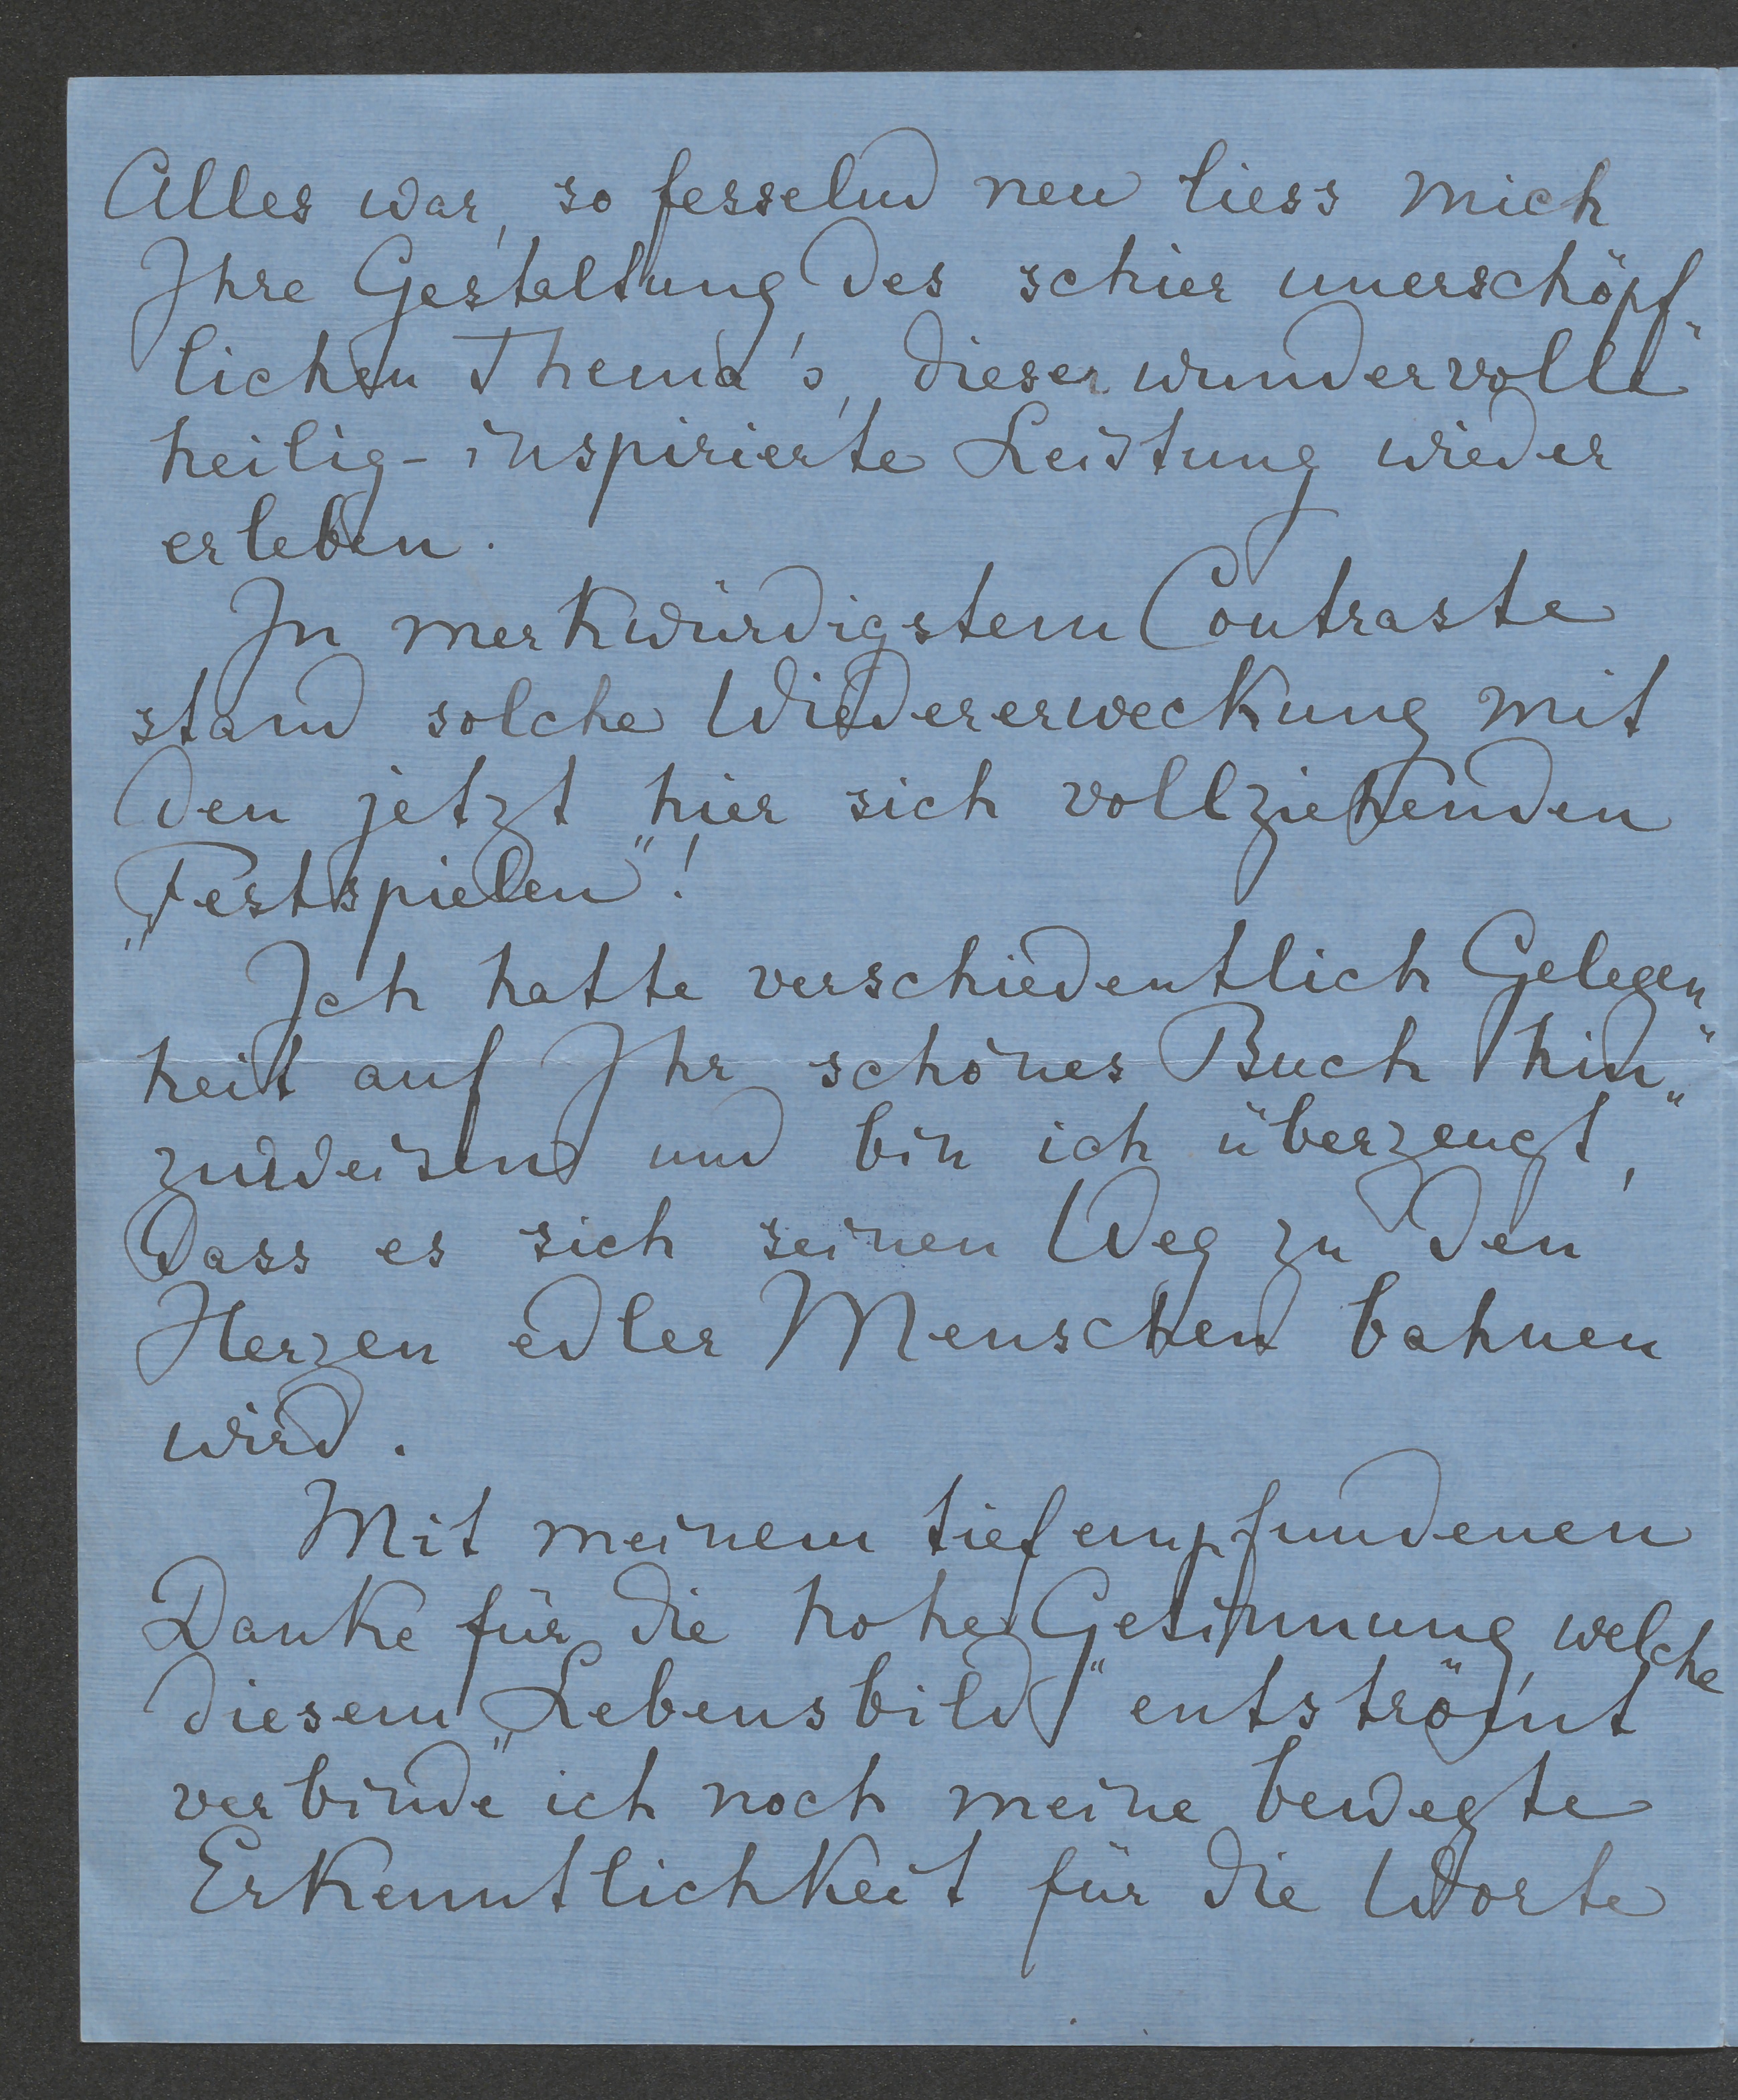 Alles war, so fesselnd neu liess mich
Ihre Gestaltung des schier unerschöpf-
lichen Thema's, dieser wundervolle
heilig-inspirierte Leistung wieder
erleben.
In merkwürdigstem Contraste
stand solche Wiedererweckung mit
den jetzt hier sich vollziehenden
„Festspielen"!
Ich hatte verschiedentlich Gelegen-
heit auf Ihr schönes Buch hin-
zuweisen und bin ich überzeugt,
dass es sich seinen Weg zu den
Herzen edler Menschen bahnen
wird.
Mit meinem tiefempfundenen
Danke für die hohe Gesinnung, welche
diesem „Lebensbild" entströmt
verbinde ich noch meine bewegte
Erkenntlichkeit für die Worte